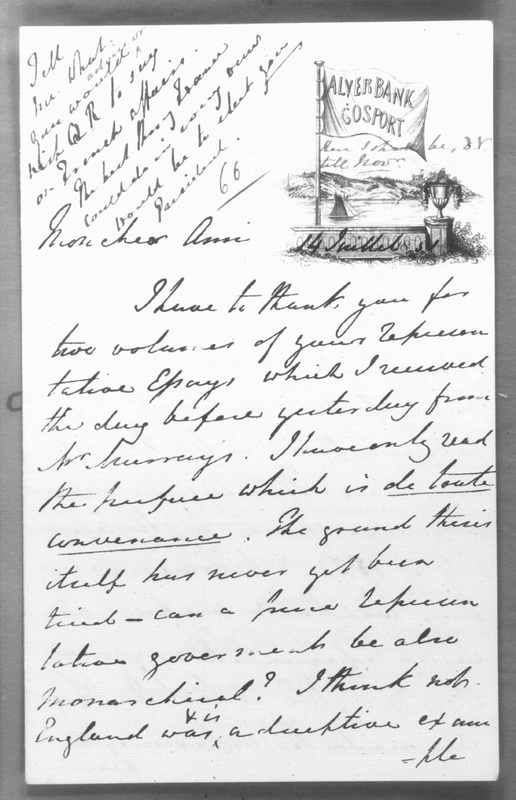 Tell
me what
you would
next Q R to say
on French affairs.
The best thing France
could do in every sense
would be to elect you
President.
66
ALVERBANK
GOSPORT
till Novr
14 Juillet
Mon cher Ami
I have to thank you for
two volumes of your represen
tative Essays which I received
the day before yesterday from
Mr Murrays. I have only read
the preface which is de toute
convenance. The grand thesis
itself has never yet been
tried – can a free represen
tative goverment be also
monarchical? I think not.
England was & is a deceptive exam
=ple